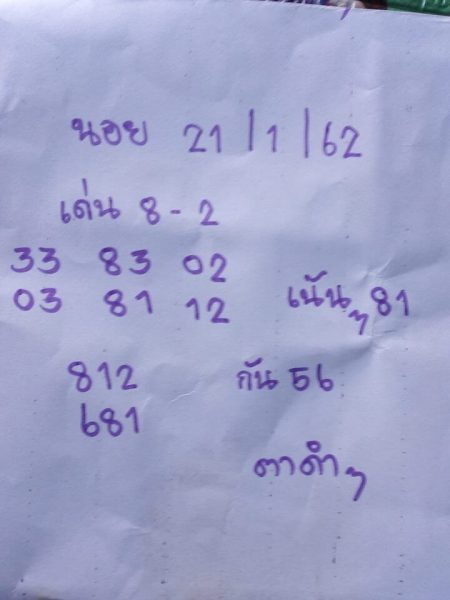 นอย 21/1/62
เด่น 8-2
33 83 02
03 81 12
เน้นๆ 81
812
กัน 56
681
ตาดำๆ